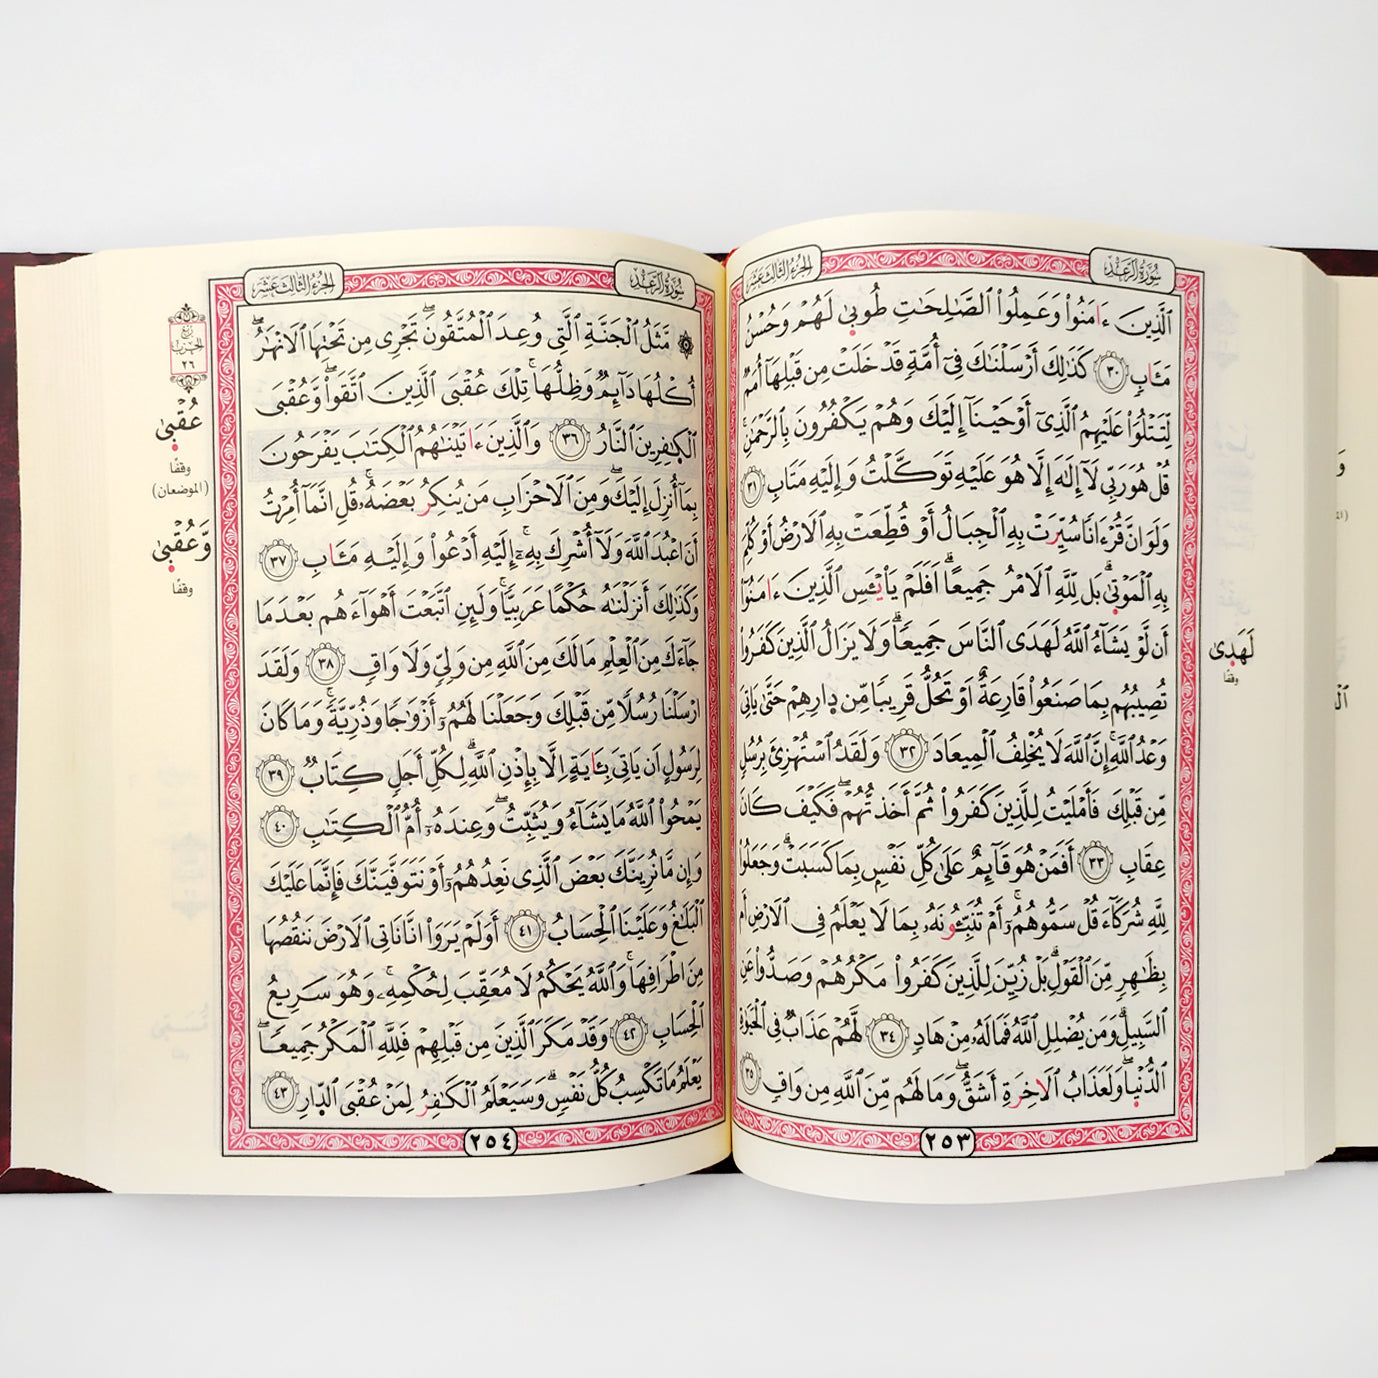 سُورَةُ الرَّعْدِ
الجُزْءُ الثَّالِثَ عَشَرَ
ٱلَّذِينَ ءَامَنُواْ وَعَمِلُواْ ٱلصَّٰلِحَٰتِ طُوبىٰ لَهُمْ وَحُسْنُ
مَـَٔابٖ ٣٠ كَذَٰلِكَ أَرْسَلْنَٰكَ فِىٓ أُمَّةٖ قَدْ خَلَتْ مِن قَبْلِهَآ أُمَمٞ
لِّتَتْلُوَاْ عَلَيْهِمُ ٱلَّذِىٓ أَوْحَيْنَآ إِلَيْكَ وَهُمْ يَكْفُرُونَ بِٱلرَّحْمَٰنِ
قُلْ هُوَ رَبِّى لَآ إِلَٰهَ إِلَّا هُوَ عَلَيْهِ تَوَكَّلْتُ وَإِلَيْهِ مَتَابِ ٣١
وَلَوَ انَّ قُرْءَانٗا سُيِّرَتْ بِهِ ٱلْجِبَالُ أَوْ قُطِّعَتْ بِهِ ٱلَارْضُ أَوْ كُلِّمَ
بِهِ ٱلْمَوْتىٰ بَل لِّلَّهِ ٱلَامْرُ جَمِيعًا اَفَلَمْ يَاْيْـَٔسِ ٱلَّذِينَ ءَامَنُوٓاْ
أَن لَّوْ يَشَآءُ ٱللَّهُ لَهَدَى ٱلنَّاسَ جَمِيعٗا وَلَا يَزَالُ ٱلَّذِينَ كَفَرُواْ
تُصِيبُهُم بِمَا صَنَعُواْ قَارِعَةٌ اَوْ تَحُلُّ قَرِيبٗا مِّن دِارِهِمْ حَتَّىٰ يَاتِىَ
وَعْدُ ٱللَّهِ إِنَّ ٱللَّهَ لَا يُخْلِفُ ٱلْمِيعَادَ ٣٢ وَلَقَدُ ٱسْتُهْزِئَ بِرُسُلٖ
مِّن قَبْلِكَ فَأَمْلَيْتُ لِلَّذِينَ كَفَرُواْ ثُمَّ أَخَذتُّهُمْ فَكَيْفَ كَانَ
عِقَابِ ٣٣ أَفَمَنْ هُوَ قَآئِمٌ عَلَىٰ كُلِّ نَفْسِۢ بِمَا كَسَبَتْ وَجَعَلُواْ
لِلَّهِ شُرَكَآءَ قُلْ سَمُّوهُمُۥٓ أَمْ تُنَبِّـُٔونَهُۥ بِمَا لَا يَعْلَمُ فِى ٱلَارْضِ أَم
بِظَٰهِرٖ مِّنَ ٱلْقَوْلِ بَلْ زُيِّنَ لِلَّذِينَ كَفَرُواْ مَكْرُهُمْ وَصَدُّواْ عَنِ
ٱلسَّبِيلِ وَمَن يُضْلِلِ ٱللَّهُ فَمَا لَهُۥ مِنْ هَادٖ ٣٤ لَّهُمْ عَذَابٞ فِى ٱلْحَيَوٰةِ
ٱلدُّنْيا وَلَعَذَابُ ٱلَاخِرَةِ أَشَقُّ وَمَا لَهُم مِّنَ ٱللَّهِ مِن وَاقٖ ٣٥
لَهَدِىٰ
وقفًا
٢٥٣
سُورَةُ الرَّعْدِ
الجُزْءُ الثَّالِثَ عَشَرَ
۞ مَّثَلُ ٱلْجَنَّةِ ٱلَّتِى وُعِدَ ٱلْمُتَّقُونَ تَجْرِى مِن تَحْتِهَا ٱلَانْهَٰرُ
أُكْلُهَا دَآئِمٞ وَظِلُّهَا تِلْكَ عُقْبَى ٱلَّذِينَ ٱتَّقَواْ وَّعُقْبَى
ٱلْكِٰفِرِينَ ٱلنَّارُ ٣٦ وَٱلَّذِينَ ءَاتَيْنَٰهُمُ ٱلْكِتَٰبَ يَفْرَحُونَ
بِمَآ أُنزِلَ إِلَيْكَ وَمِنَ ٱلَاحْزَابِ مَن يُنكِرُ بَعْضَهُۥ قُلِ اِنَّمَآ أُمِرْتُ
أَنَ اَعْبُدَ ٱللَّهَ وَلَآ أُشْرِكَ بِهِۦٓ إِلَيْهِ أَدْعُواْ وَإِلَيْهِ مَـَٔابِ ٣٧
وَكَذَٰلِكَ أَنزَلْنَٰهُ حُكْمًا عَرَبِيّٗا وَلَئِنِ ٱتَّبَعْتَ أَهْوَآءَهُم بَعْدَ مَا
جَآءَكَ مِنَ ٱلْعِلْمِ مَا لَكَ مِنَ ٱللَّهِ مِن وَلِىّٖ وَلَا وَاقٖ ٣٨ وَلَقَدَ
اَرْسَلْنَا رُسُلٗا مِّن قَبْلِكَ وَجَعَلْنَا لَهُمُۥٓ أَزْوَٰجٗا وَذُرِّيَّةٗ وَمَا كَانَ
لِرَسُولٍ اَن يَاتِىَ بِـَٔايَةٍ اِلَّا بِإِذْنِ ٱللَّهِ لِكُلِّ أَجَلٖ كِتَابٞ ٣٩
يَمْحُواْ ٱللَّهُ مَا يَشَآءُ وَيُثَبِّتُ وَعِندَهُۥٓ أُمُّ ٱلْكِتَٰبِ ٤٠
وَإِن مَّا نُرِيَنَّكَ بَعْضَ ٱلَّذِى نَعِدُهُمُۥٓ أَوْ نَتَوَفَّيَنَّكَ فَإِنَّمَا عَلَيْكَ
ٱلْبَلَٰغُ وَعَلَيْنَا ٱلْحِسَابُ ٤١ أَوَلَمْ يَرَوَاْ اَنَّا نَاتِى ٱلَارْضَ نَنقُصُهَا
مِنَ اَطْرَافِهَا وَٱللَّهُ يَحْكُمُ لَا مُعَقِّبَ لِحُكْمِهِۦ وَهُوَ سَرِيعُ
ٱلْحِسَابِ ٤٢ وَقَدْ مَكَرَ ٱلَّذِينَ مِن قَبْلِهِمْ فَلِلَّهِ ٱلْمَكْرُ جَمِيعٗا
يَعْلَمُ مَا تَكْسِبُ كُلُّ نَفْسٖ وَسَيَعْلَمُ ٱلْكَٰفِرُ لِمَنْ عُقْبَى ٱلدِّارِ ٤٣
رُبْعُ
الحِزْبِ
٢٦
عُقْبىٰ
وقفًا
(الموضعان)
وَّعُقْبىٰ
وقفًا
٢٥٤